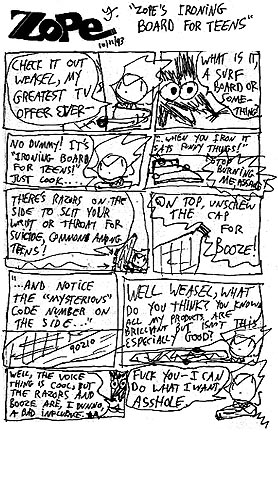 ZOPE
y. "ZOPE'S IRONING
BOARD FOR TEENS"
10/11/93
CHECK IT OUT
WEASEL, MY
GREATEST TV
OFFER EVER—
WHAT IS IT,
A SURF
BOARD OR
SOME-
THING?
NO DUMMY! IT'S
"IRONING BOARD
FOR TEENS!"
JUST LOOK....
WHEN YOU IRON IT
SAYS FUNNY THINGS!"
STOP
BURNING
ME,
THERE'S RAZORS ON
THE SIDE
TO SLIT YOUR
WRIST OR THROAT FOR
SUICIDE, COMMON AMONG
TEENS!
ON TOP, UNSCREW
THE CAP
FOR
BOOZE!
...AND NOTICE
THE "MYSTERIOUS"
CODE NUMBER ON
THE SIDE..."
90210
WELL WEASEL, WHAT
DO YOU THINK? YOU KNOW
ALL MY PRODUCTS ARE
BRILLIANT BUT ISN'T THIS
ESPECIALLY GOOD?
WELL, THE VOICE
THING IS COOL, BUT
THE RAZORS AND
BOOZE ARE, I DUNNO,
A BAD INFLUENCE.
FUCK YOU—I CAN
DO WHAT I WANT,
ASSHOLE.